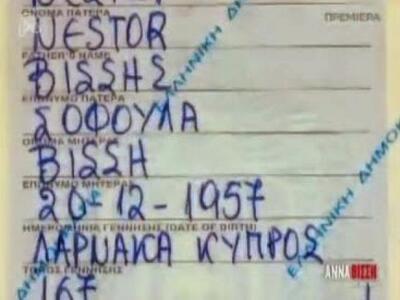 ΟΝΟΜΑ ΠΑΤΕΡΑ
ΠΡΕΜΙΕΡΑ
NESTOR
FATHER'S NAME
ΒΙΣΣΗΣ
ΕΠΩΝΥΜΟ ΠΑΤΕΡΑ
ΣΟΦΟΥΛΑ
ΟΝΟΜΑ ΜΗΤΕΡΑΣ
ΒΙΣΣΗ
ΕΠΩΝΥΜΟ ΜΗΤΕΡΑΣ
20-12-1957
ΗΜΕΡΟΜΗΝΙΑ ΓΕΝΝΗΣΗΣ (DATE OF BIRTH)
ΛΑΡΝΑΚΑ ΚΥΠΡΟΣ
ΤΟΠΟΣ ΓΕΝΝΗΣΗΣ
167
ΕΛΛΗΝΙΚΗ ΔΗΜΟ
ΕΛΛΗΝΙΚΗ ΔΗΜΟΚ
ΔΗΜΟ
ΑΝΝΑ ΒΙΣΣΗ